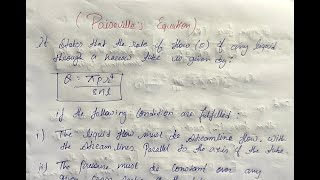 (Poiseuille's Equation)
It states that the rate of flow (Q) of any liquid
through a narrow tube is given by:
Q = πpr⁴ / 8ηl
if the following condition are fulfilled:
i) The liquid flow must be streamline flow, with
the streamlines parallel to the axis of the tube.
ii) The pressure must be constant over any
given cross